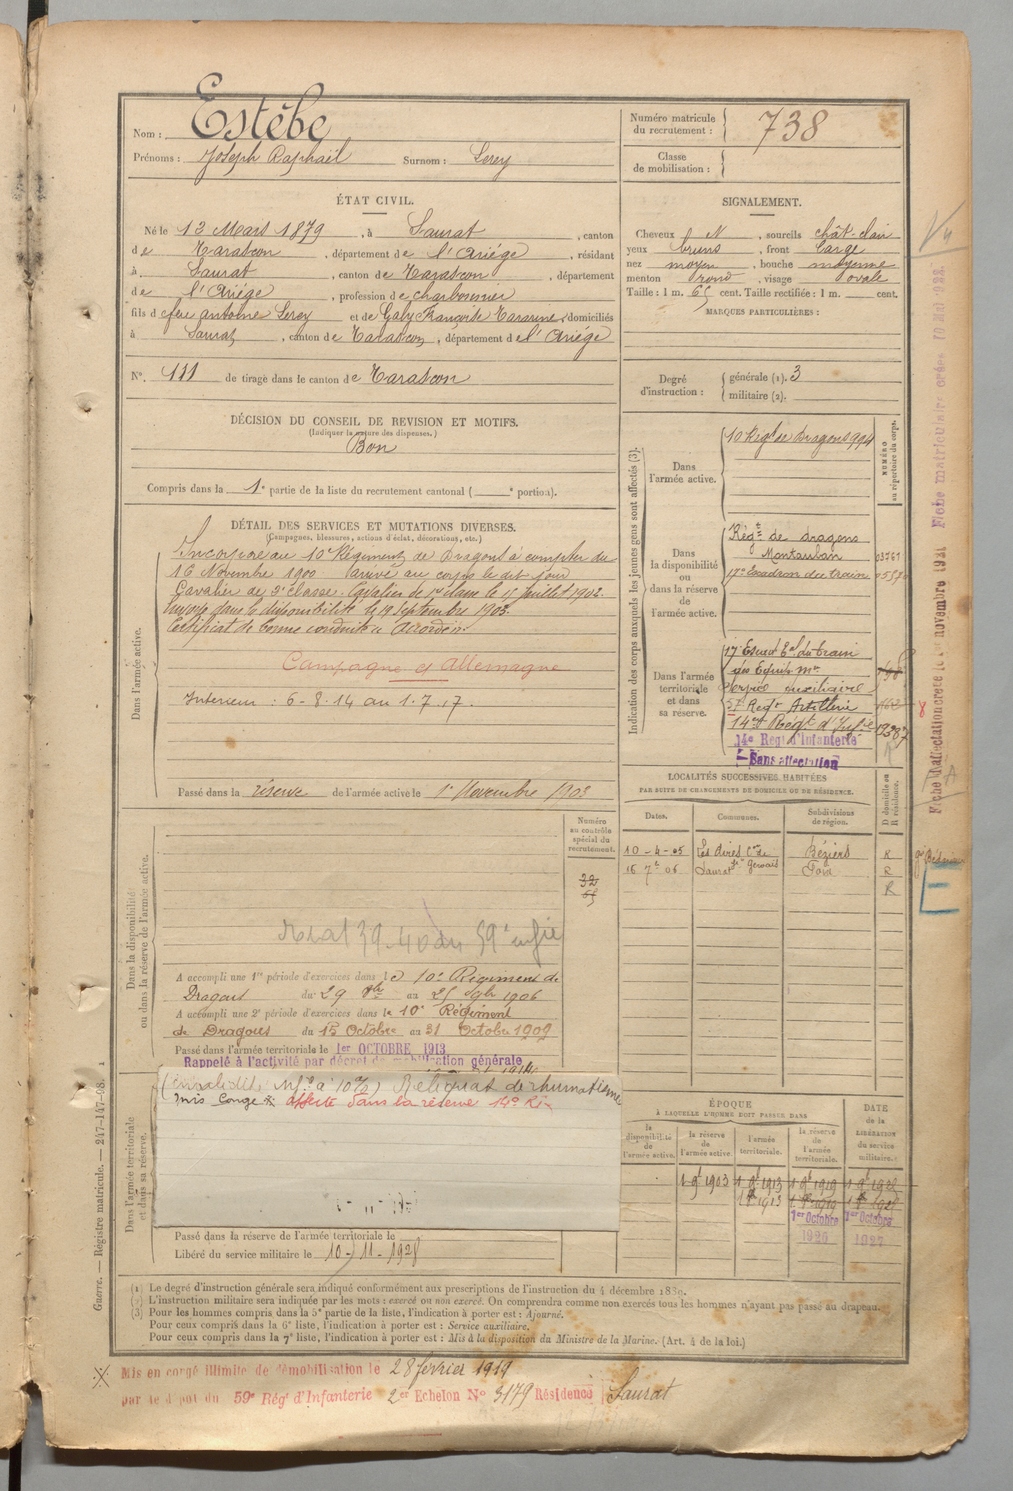 Nom : Estèbe
Prénoms : Joseph Raphaël Surnom : Serey
Numéro matricule du recrutement : 738
Classe de mobilisation :
ÉTAT CIVIL.
Né le 13 Mars 1879, à Saurat, canton
de Tarascon, département de l'Ariége, résidant
à Saurat, canton de Tarascon, département
de l'Ariége, profession de charbonnier
fils de feu antoine Serey et de Galy Françoise, domiciliés
à Saurat, canton de Tarascon, département de l'Ariége
N° 111 de tirage dans le canton de Tarascon
SIGNALEMENT.
Cheveux N, sourcils chât clair
yeux bruns, front large
nez moyen, bouche moyenne
menton rond, visage ovale
Taille : 1 m. 65 cent. Taille rectifiée : 1 m. cent.
MARQUES PARTICULIÈRES :
Degré d'instruction : générale (1). 3
militaire (2).
DÉCISION DU CONSEIL DE REVISION ET MOTIFS.
(Indiquer la nature des dispenses.)
Bon
Compris dans la 1e partie de la liste du recrutement cantonal ( e portion).
DÉTAIL DES SERVICES ET MUTATIONS DIVERSES.
(Campagnes, blessures, actions d'éclat, décorations, etc.)
Dans l'armée active.
Incorporé au 10e Régiment de Dragons à compter du
16 Novembre 1900 arrivé au corps le dit jour
Cavalier de 2e classe. Cavalier de 1re classe le 15 Juillet 1902.
Envoyé dans la disponibilité le 19 Septembre 1903.
Certificat de bonne conduite accordé.
Campagne ct Allemagne
Interieur : 6-8-14 au 1.7.17.
Passé dans la réserve de l'armée active le 1er Novembre 1903
Indication des corps auxquels les jeunes gens sont affectés (3).
NUMÉRO au répertoire du corps.
Dans l'armée active.
10 Régt de Dragons 994
Dans la disponibilité ou dans la réserve de l'armée active.
Régt de dragons
Montauban
17e Escadron du train
Dans l'armée territoriale et dans sa réserve.
17e Escad. Eal du train
des Equip. mres
Service auxiliaire
57 Régt Artillerie
14e Régt d'Infie
14e Régt d'Infanterie
Sans affectation
LOCALITÉS SUCCESSIVES HABITÉES
PAR SUITE DE CHANGEMENTS DE DOMICILE OU DE RÉSIDENCE.
Dates. Communes. Subdivisions de région. D domicile ou R résidence.
10-4-05 Les Aires Cne de St Gervais Béziers R
16 7e 06 Saurat Foix R
R
Dans la disponibilité ou dans la réserve de l'armée active.
Numéro au contrôle spécial du recrutement.
32
A accompli une 1re période d'exercices dans le 10e Régiment de
Dragons du 29 8bre au 25 9bre 1906
A accompli une 2e période d'exercices dans le 10e Régiment
de Dragons du 15 Octobre au 31 Octobre 1909
Passé dans l'armée territoriale le 1er OCTOBRE 1913
Rappelé à l'activité par décret de mobilisation générale
Dans l'armée territoriale et dans sa réserve.
(invalidité à 10%) Reliquat de rhumatisme
mis Congé affecté dans la réserve 14e Ri
Passé dans la réserve de l'armée territoriale le
Libéré du service militaire le 10-11-1928
ÉPOQUE
À LAQUELLE L'HOMME DOIT PASSER DANS
la disponibilité de l'armée active. la réserve de l'armée active. l'armée territoriale. la réserve de l'armée territoriale.
DATE de la LIBÉRATION du service militaire.
1 9bre 1903 1 9bre 1913 1 9bre 1919
1er Octobre 1er Octobre
1926 1927
(1) Le degré d'instruction générale sera indiqué conformément aux prescriptions de l'instruction du 4 décembre 1889.
(2) L'instruction militaire sera indiquée par les mots : exercé ou non exercé. On comprendra comme non exercés tous les hommes n'ayant pas passé au drapeau.
(3) Pour les hommes compris dans la 5e partie de la liste, l'indication à porter est : Ajourné.
Pour ceux compris dans la 6e liste, l'indication à porter est : Service auxiliaire.
Pour ceux compris dans la 7e liste, l'indication à porter est : Mis à la disposition du Ministre de la Marine. (Art. 4 de la loi.)
Mis en congé illimité de démobilisation le 28 février 1919
par le dépôt du 59e Régt d'Infanterie 2er Echelon N° 3179 Résidence Saurat
Guerre. — Registre matricule. — 247-147-98.
Fiche d'affectation créée le 1er novembre 1921 Fiche matriculaire créée 10 Mai 1922.